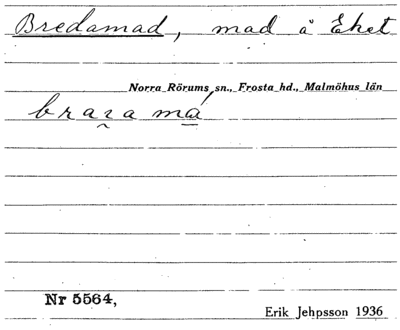 Bredamad, mad å Eket
Norra Rörums sn., Frosta hd., Malmöhus län
Nr 5564,
Erik Jehpsson 1936